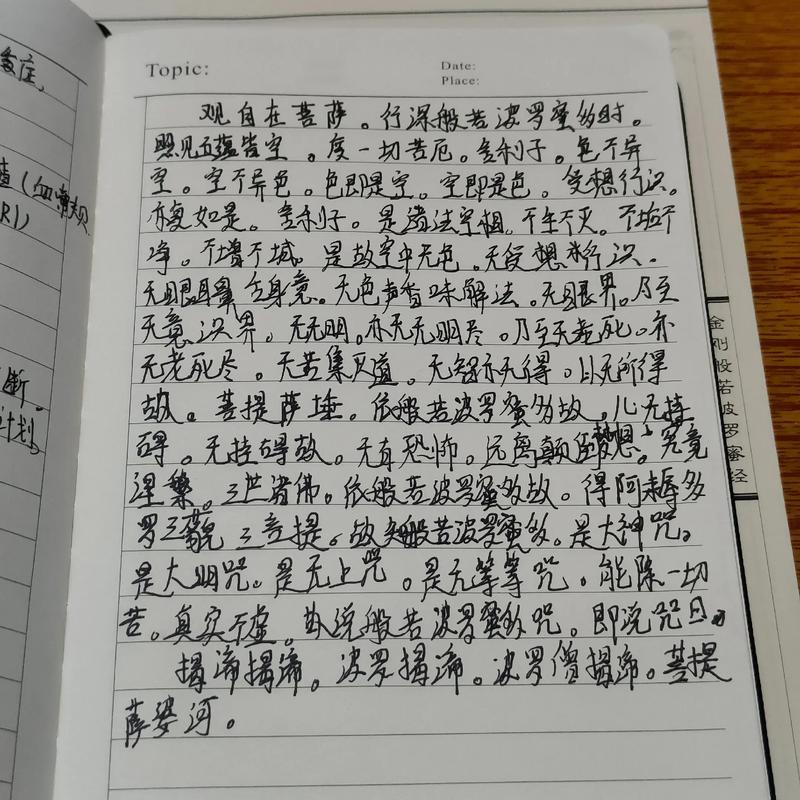 Topic:
Date:
Place:
观自在菩萨。行深般若波罗蜜多时。
照见五蕴皆空。度一切苦厄。舍利子。色不异
空。空不异色。色即是空。空即是色。受想行识。
亦复如是。舍利子。是诸法空相。不生不灭。不垢不
净。不增不减。是故空中无色。无受想行识。
无眼耳鼻舌身意。无色声香味解法。无眼界。乃至
无意识界。无无明。亦无无明尽。乃至无老死。亦
无老死尽。无苦集灭道。无智亦无得。以无所得
故。菩提萨埵。依般若波罗蜜多故。心无挂
碍。无挂碍故。无有恐怖。远离颠倒梦想。究竟
涅槃。三世诸佛。依般若波罗蜜多故。得阿耨多
罗三藐三菩提。故知般若波罗蜜多。是大神咒。
是大明咒。是无上咒。是无等等咒。能除一切
苦。真实不虚。故说般若波罗蜜多咒。即说咒曰。
揭谛揭谛。波罗揭谛。波罗僧揭谛。菩提
萨婆诃。
金刚般若波罗蜜经
断.
计划
RI)